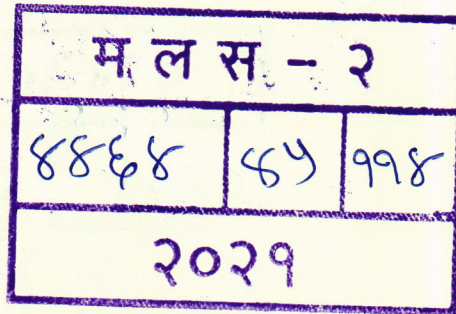 म ल स - २
४४६४ ४५ ११४
२०२१